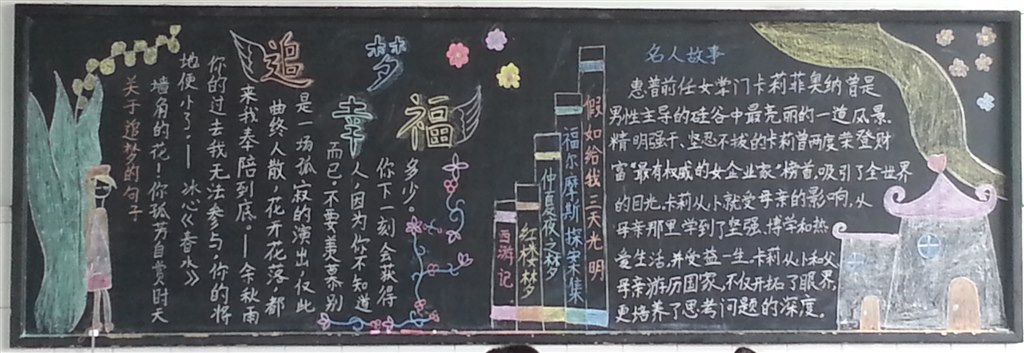 追梦
幸福
关于追梦的句子
墙角的花！你孤芳自赏时天
地便小了。——冰心《春水》
你的过去我无法参与，你的将
来我奉陪到底。——余秋雨
曲终人散，花开花落，都
是一场孤寂的演出，仅此
而已。不要羡慕别
人，因为你不知道
你下一刻会获得
多少。
西游记
红楼梦
仲夏夜之梦
福尔摩斯探案集
假如给我三天光明
名人故事
惠普前任女掌门卡莉菲奥纳曾是
男性主导的硅谷中最亮丽的一道风景.
精明强干、坚忍不拔的卡莉曾两度荣登财
富“最有权威的女企业家”榜首,吸引了全世界
的目光.卡莉从小就受母亲的影响,从
母亲那里学到了坚强、博学和热
爱生活,并受益一生.卡莉从小和父
母亲游历国家,不仅开拓了眼界,
更培养了思考问题的深度。